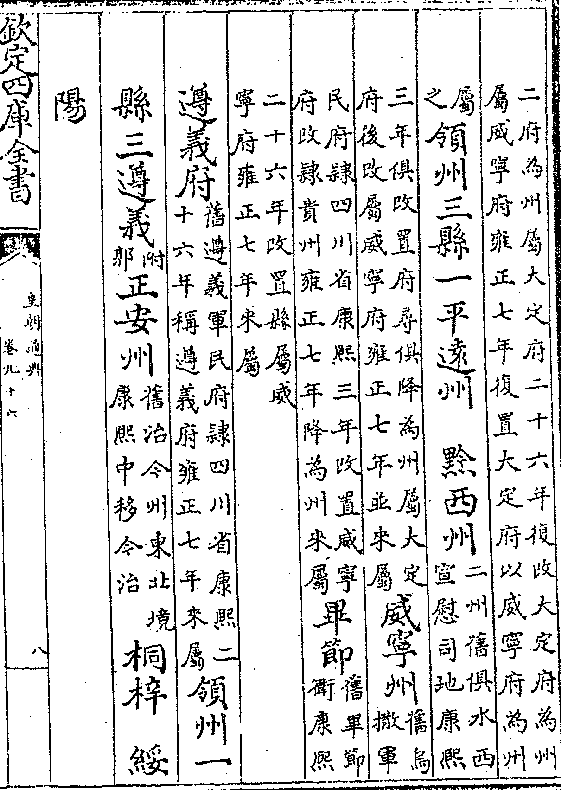 二府為州屬大定府二十六年復改大定府為州
屬威寧府雍正七年復置大定府以威寧府為州
屬之領州三縣一平遠州 黔西州二州舊俱水西宣慰司地康熙
三年俱改置府尋俱降為州屬大定府後改屬威寧府雍正七年並來屬威寧州舊烏撒軍
民府隷四川省康熙三年改置威寧府改隷貴州雍正七年降為州來屬畢節舊畢節衛康熙
二十六年改置縣屬威寧府雍正七年來屬
遵義府舊遵義軍民府隷四川省康熙二十六年稱遵義府雍正七年來屬領州一
縣三遵義附郭正安州舊治今州東北境康熙中移今治桐梓 綏
陽
欽定四庫全書
皇朝通典
卷九十六
八